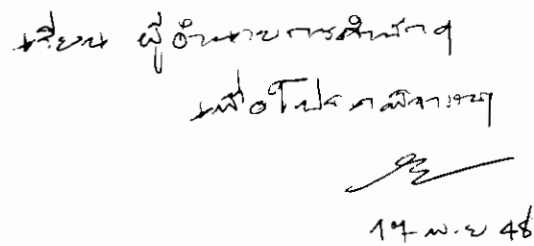 เรียน ผู้อำนวยการสำนักฯ
เพื่อโปรดพิจารณา
17 พ.ย 48